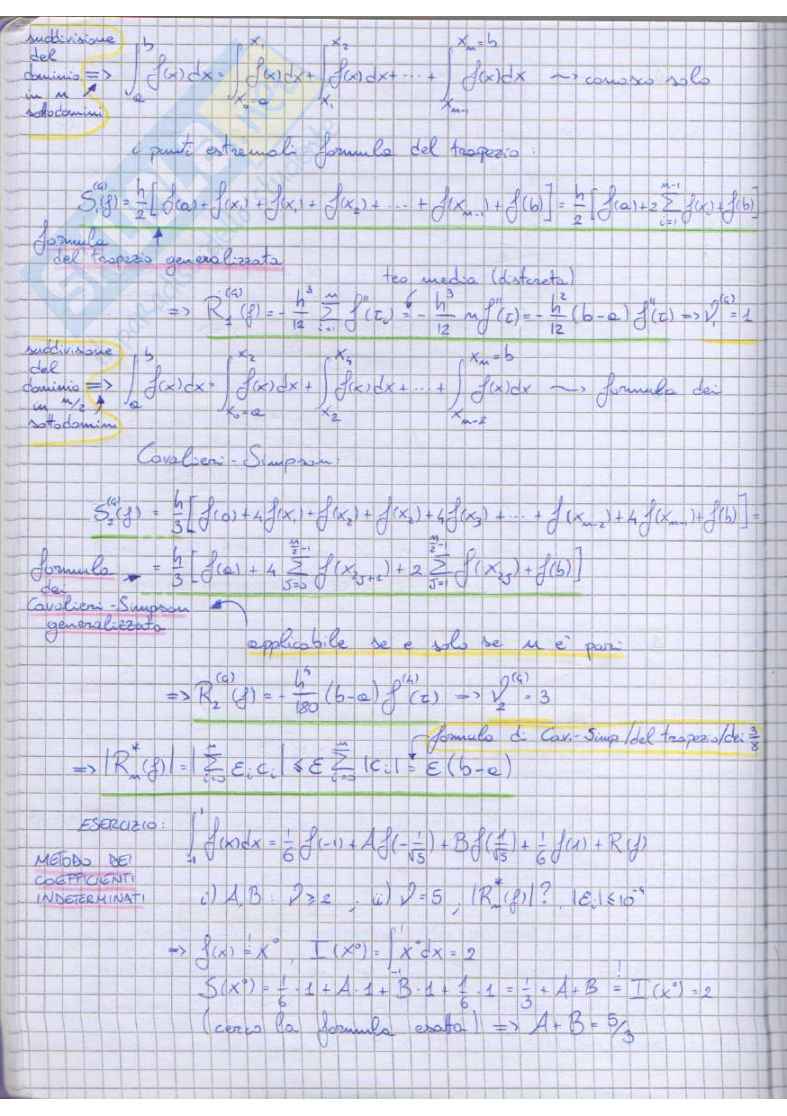 suddivisione del dominio in n sottodomini => ∫_a^b f(x)dx = ∫_{x₀=a}^{x₁} f(x)dx + ∫_{x₁}^{x₂} f(x)dx + ··· + ∫_{x_{n-1}}^{x_n=b} f(x)dx ~> conosco solo
i punti estremali formula del trapezio:
S₁^(G)(f) = h/2 [f(a) + f(x₁) + f(x₁) + f(x₂) + ··· + f(x_{n-1}) + f(b)] = h/2 [f(a) + 2 Σ_{i=1}^{n-1} f(x_i) + f(b)]
formula del trapezio generalizzata
teo media (discreta)
=> R₁^(G)(f) = - h³/12 Σ_{i=1}^n f''(τ_i) = - h³/12 n f''(τ) = - h²/12 (b-a) f''(τ) => ν₁^(G) = 1
suddivisione del dominio in n/2 sottodomini => ∫_a^b f(x)dx = ∫_{x₀=a}^{x₂} f(x)dx + ∫_{x₂}^{x₄} f(x)dx + ··· + ∫_{x_{n-2}}^{x_n=b} f(x)dx ~> formula dei
Cavalieri-Simpson:
S₂^(G)(f) = h/3 [f(a) + 4f(x₁) + f(x₂) + f(x₂) + 4f(x₃) + ··· + f(x_{n-2}) + 4f(x_{n-1}) + f(b)] =
= h/3 [f(a) + 4 Σ_{j=0}^{n/2-1} f(x_{2j+1}) + 2 Σ_{j=1}^{n/2-1} f(x_{2j}) + f(b)]
formula dei Cavalieri-Simpson generalizzata
applicabile se e solo se n è pari
=> R₂^(G)(f) = - h⁴/180 (b-a) f^(4)(τ) => ν₂^(G) = 3
formula di Cav.-Simp/del trapezio/dei 3/8
=> |R_n^*(f)| = |Σ_{i=0}^n ε_i c_i| ≤ ε Σ_{i=0}^n |c_i| = ε(b-a)
ESERCIZIO: ∫_{-1}^1 f(x)dx = 1/6 f(-1) + A f(-1/√5) + B f(1/√5) + 1/6 f(1) + R(f)
METODO DEI COEFFICIENTI INDETERMINATI
i) A,B : ν ≥ 2 , ii) ν = 5 , |R_n^*(f)|? , |ε_i| ≤ 10⁻⁴
=> f(x) = x⁰, I(x⁰) = ∫_{-1}^1 x⁰dx = 2
S(x⁰) = 1/6 · 1 + A · 1 + B · 1 + 1/6 · 1 = 1/3 + A + B = I(x⁰) = 2
(cerco la formula esatta) => A + B = 5/3